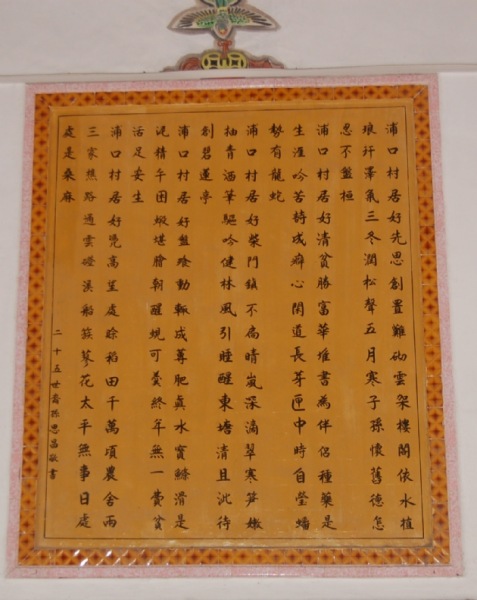 浦口村居好先思創置難砌雲架樓閣依水植
琅玕澤氣三冬潤松聲五月寒子孫懷舊德怎
忍不盤桓
浦口村居好清貧勝富華堆書為伴侶種藥是
生涯吟苦詩成癖心閑道長芽匣中時自瑩蟠
勢有龍蛇
浦口村居好柴門鎮不扃晴嵐深滴翠寒笋嫩
抽青酒筆驅吟健林風引睡醒東塘清且泚待
創碧蓮亭
浦口村居好盤飱動輒成蓴肥真水寶鰷滑是
泥精午困蝦堪膾朝醒蜆可羹終年無一費貧
活足安生
浦口村居好凭高望處賒稻田千萬頃農舍兩
三家樵路通雲磴溪船簇蓼花太平無事日處
處是桑麻
二十五世裔孫忠昌敬書